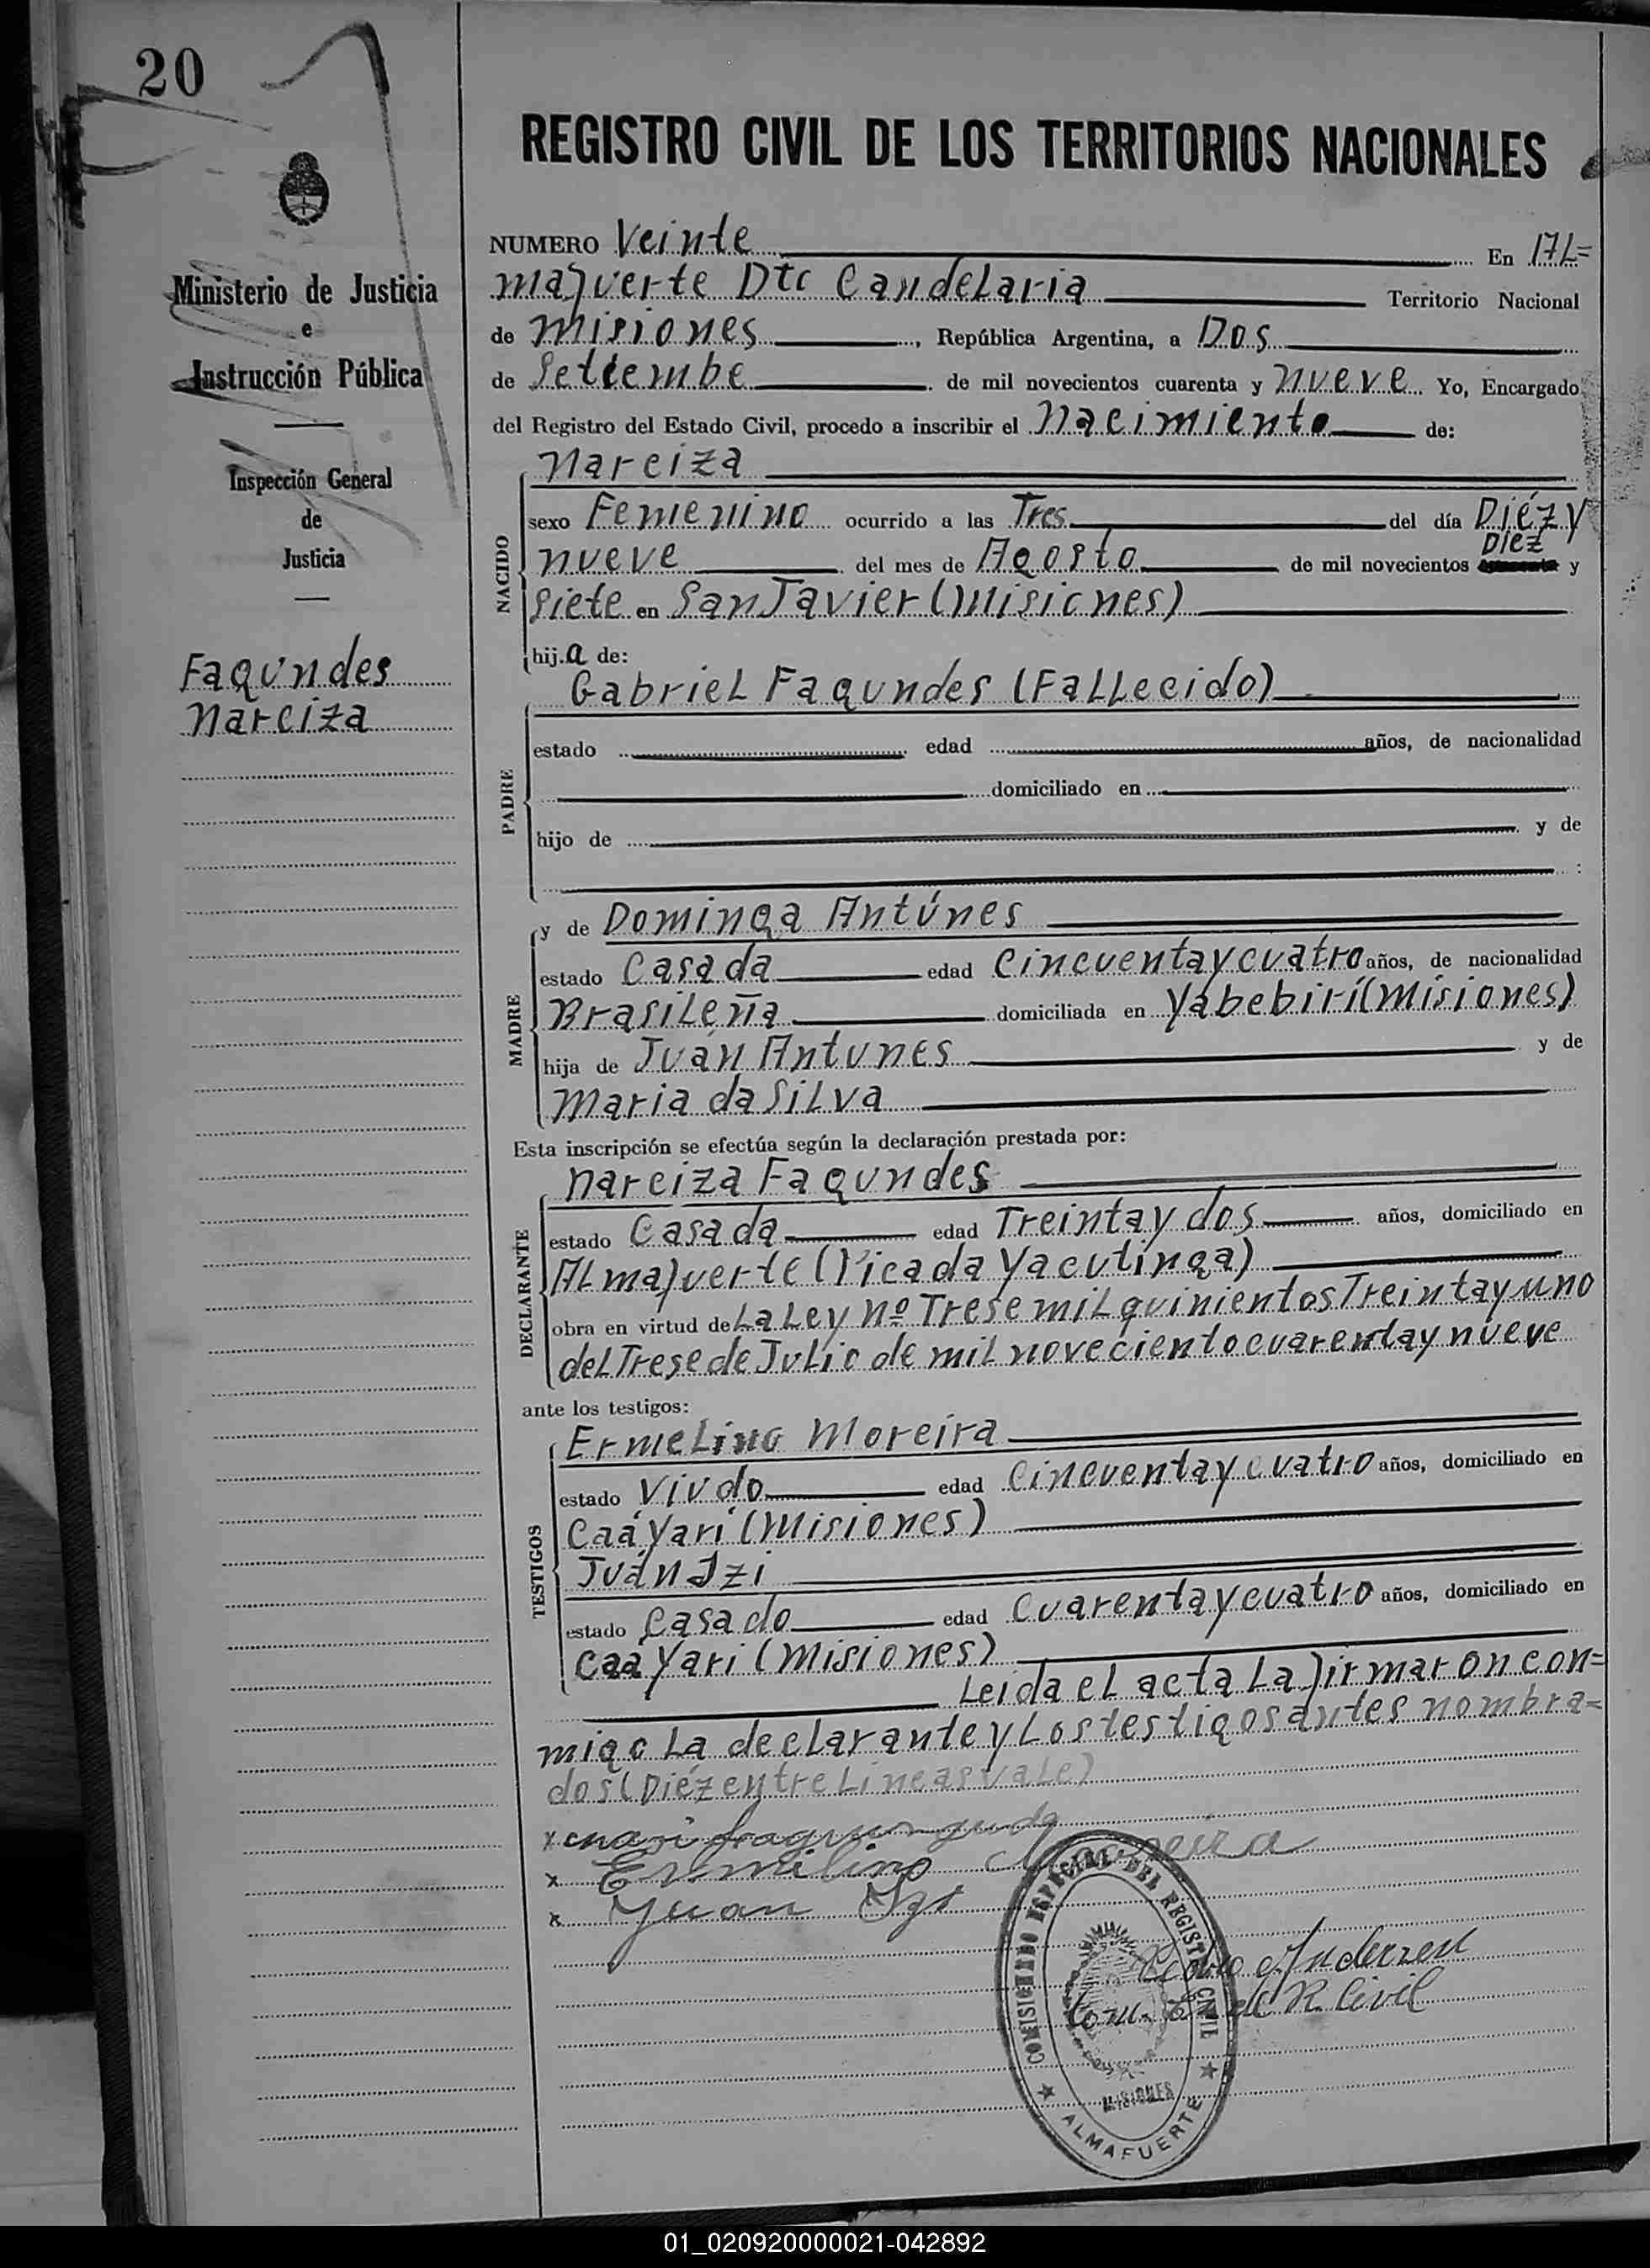 20
REGISTRO CIVIL DE LOS TERRITORIOS NACIONALES
Ministerio de Justicia
e
Instrucción Pública
Inspección General
de
Justicia
Fagundes
Narciza
NUMERO Veinte En Al=
mafuerte Dtc Candelaria Territorio Nacional
de Misiones, República Argentina, a Dos
de Settembe de mil novecientos cuarenta y nueve Yo, Encargado
del Registro del Estado Civil, procedo a inscribir el nacimiento de:
Narciza
NACIDO
sexo Femenino ocurrido a las Tres del día Diéz y
Diez
nueve del mes de Agosto de mil novecientos y
siete en San Javier (Misiones)
hij.a de:
Gabriel Fagundes (Fallecido)
PADRE
estado edad años, de nacionalidad
domiciliado en
hijo de y de
:
MADRE
y de Dominga Antúnes
estado Casada edad Cincuenta y cuatro años, de nacionalidad
Brasileña domiciliada en Yabebirí (Misiones)
hija de Juán Antunes y de
Maria da Silva
Esta inscripción se efectúa según la declaración prestada por:
Narciza Fagundes
DECLARANTE
estado Casada edad Treinta y dos años, domiciliado en
Almafuerte (Picada Yacutinga)
obra en virtud de La Ley Nº Trese mil quinientos Treinta y uno
del Trese de Julio de mil noveciento cuarenta y nueve
ante los testigos:
Ermelino Moreira
TESTIGOS
estado Viudo edad Cincuenta y cuatro años, domiciliado en
Caá Yarí (Misiones)
Juán Izi
estado Casado edad Cuarenta y cuatro años, domiciliado en
Caá Yari (Misiones)
Leida el acta La firmaron con=
migo La declarante y Los testigos antes nombra=
dos (Diéz entre Lineas vale)
x
x Ermilino Moreira
x Juan Izi
COMISIONADO ESPECIAL DEL REGISTRO CIVIL
MISIONES
ALMAFUERTE
Pedro Anderzen
Com. Es del R. Civil
01_020920000021-042892